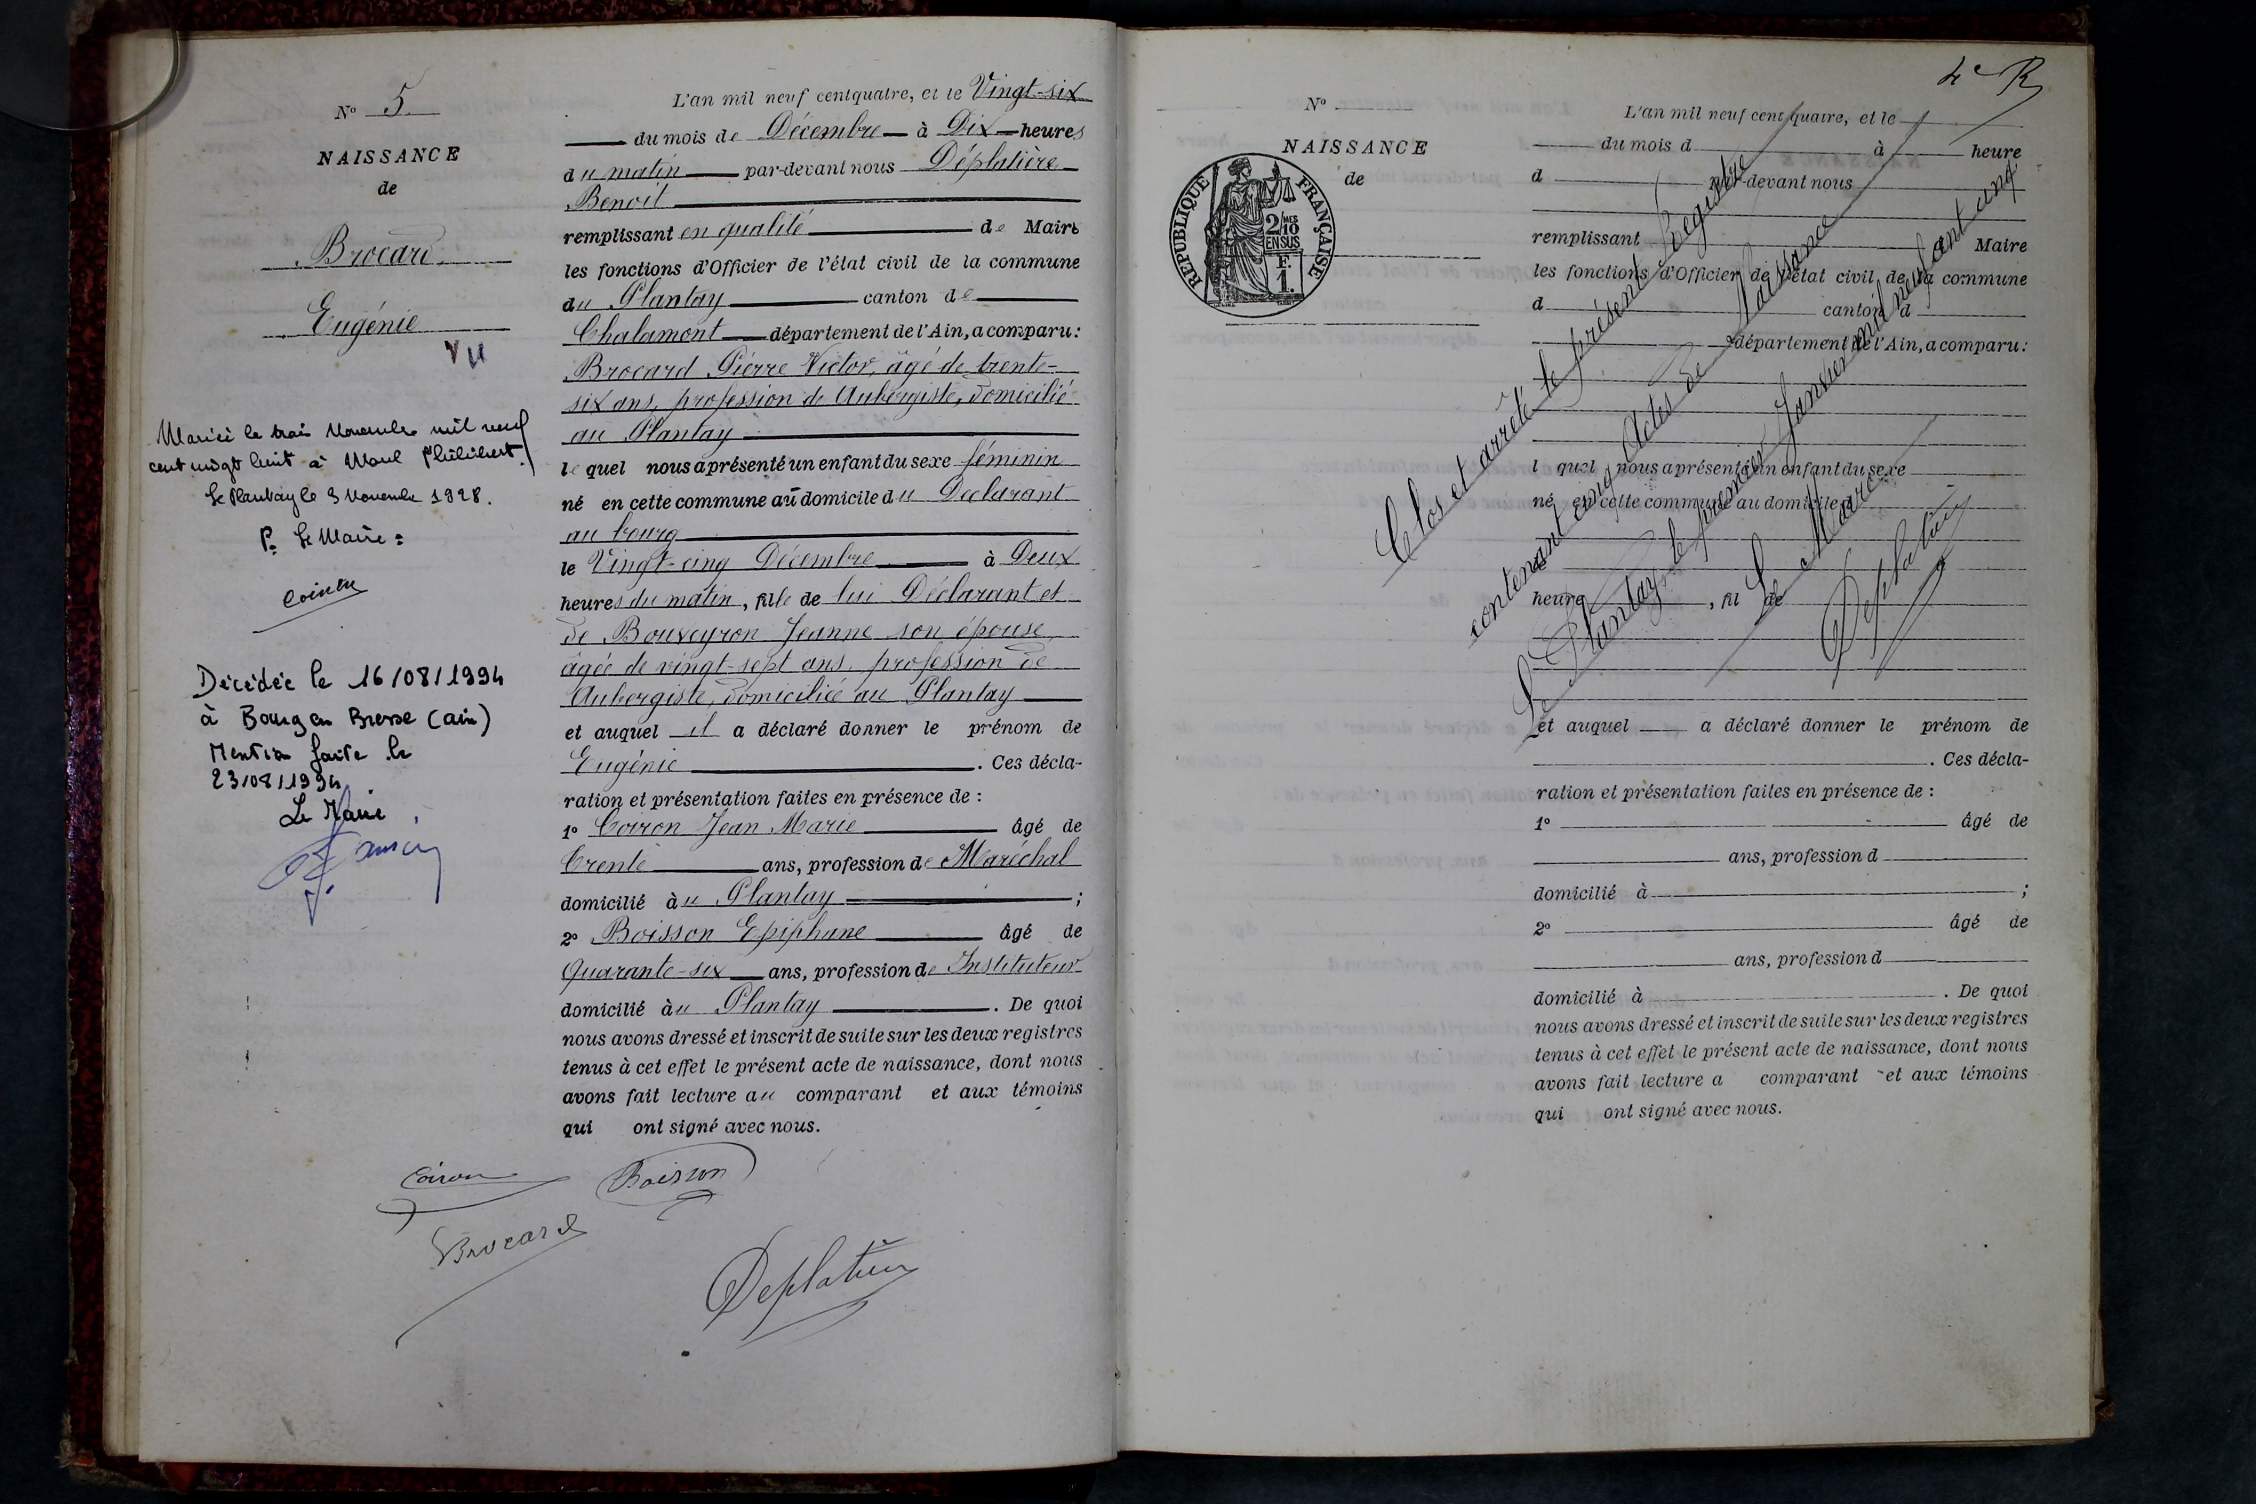 N° 5
NAISSANCE
de
Brocard
Eugénie
VU
Mariée le trois Novembre mil neuf
cent vingt huit à Morel Philibert.
Le Plantay le 3 Novembre 1928.
P. Le Maire =
Décédée le 16/08/1994
à Bourg en Bresse (ain)
Mention faite le
23/08/1994
Le Maire
L'an mil neuf cent quatre, et le Vingt-six
du mois de Décembre à Dix heures
du matin par-devant nous Déplatière
Benoit
remplissant en qualité de Maire
les fonctions d'Officier de l'état civil de la commune
du Plantay canton de
Chalamont département de l'Ain, a comparu :
Brocard Pierre Victor, âgé de trente-
six ans, profession de Aubergiste, domicilié
au Plantay
lequel nous a présenté un enfant du sexe féminin
né en cette commune au domicile du Déclarant
au bourg
le Vingt-cinq Décembre à Deux
heures du matin, fille de lui Déclarant et
de Bouveyron Jeanne son épouse,
âgée de vingt-sept ans, profession de
Aubergiste, domiciliée au Plantay
et auquel il a déclaré donner le prénom de
Eugénie . Ces décla-
ration et présentation faites en présence de :
1° Coiron Jean Marie âgé de
Trente ans, profession de Maréchal
domicilié au Plantay ;
2° Boisson Epiphane âgé de
Quarante-six ans, profession de Instituteur
domicilié au Plantay . De quoi
nous avons dressé et inscrit de suite sur les deux registres
tenus à cet effet le présent acte de naissance, dont nous
avons fait lecture au comparant et aux témoins
qui ont signé avec nous.
Coiron Boisson
Brocard
Deplatière
4e R
N°
NAISSANCE
de
REPUBLIQUE FRANÇAISE
2/10 MES
EN SUS
F.
1.
L'an mil neuf cent quatre, et le
du mois d à heure
d par-devant nous
remplissant Maire
les fonctions d'Officier de l'état civil de la commune
d canton d
département de l'Ain, a comparu :
l quel nous a présenté un enfant du sexe
né en cette commune au domicile d
heure , fil de
et auquel a déclaré donner le prénom de
. Ces décla-
ration et présentation faites en présence de :
1° âgé de
ans, profession d
domicilié à ;
2° âgé de
ans, profession d
domicilié à . De quoi
nous avons dressé et inscrit de suite sur les deux registres
tenus à cet effet le présent acte de naissance, dont nous
avons fait lecture a comparant et aux témoins
qui ont signé avec nous.
Clos et arrêté le présent Registre
contenant cinq Actes de Naissance
Le Plantay, le premier Janvier mil neuf cent cinq
Le Maire
Deplatière